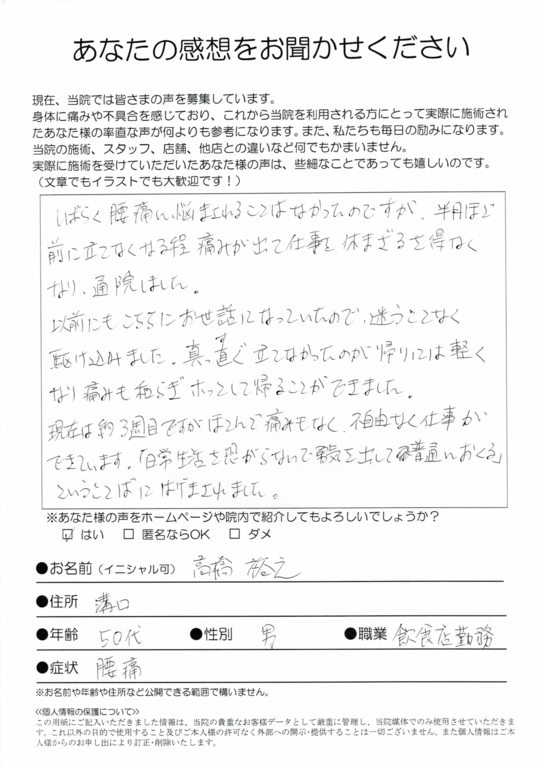 あなたの感想をお聞かせください
現在、当院では皆さまの声を募集しています。
身体に痛みや不具合を感じており、これから当院を利用される方にとって実際に施術され
たあなた様の率直な声が何よりも参考になります。また、私たちも毎日の励みになります。
当院の施術、スタッフ、店舗、他店との違いなど何でもかまいません。
実際に施術を受けていただいたあなた様の声は、些細なことであっても嬉しいのです。
（文章でもイラストでも大歓迎です！）
しばらく腰痛に悩まされることはなかったのですが、半月ほど
前に立てなくなる程痛みが出て仕事を休まざるを得なく
なり、通院しました。
以前にもこちらにお世話になっていたので、迷うことなく
駆け込みました。真っ直ぐ立てなかったのが帰りには軽く
なり痛みも和らぎホッとして帰ることができました。
現在は約3週目ですがほとんど痛みもなく、不自由なく仕事が
できています。「日常生活を恐がらないで勇気を出して普通におくる」
ということばにはげまされました。
※あなた様の声をホームページや院内で紹介してもよろしいでしょうか？
☑ はい □ 匿名ならOK □ ダメ
●お名前（イニシャル可） 高橋 裕之
●住所 溝口
●年齢 50代 ●性別 男 ●職業 飲食店勤務
●症状 腰痛
※お名前や年齢や住所など公開できる範囲で構いません。
≪個人情報の保護について≫
この用紙にご記入いただきました情報は、当院の貴重なお客様データとして厳重に管理し、当院媒体でのみ使用させていただきま
す。これ以外の目的で使用すること及びご本人様の許可なく外部への開示・提供することは一切ございません。また個人情報はご本
人様からのお申し出により訂正・削除いたします。